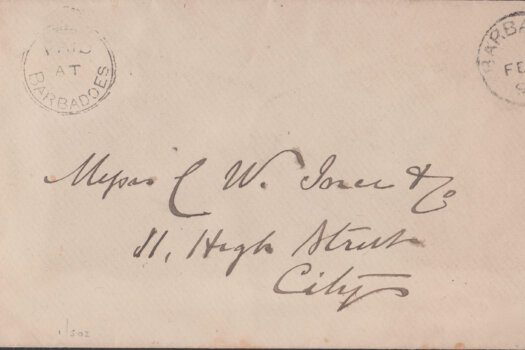 PAID
AT
BARBADOES
BARBA
FE
Messrs C W. & Co
11, High Street
City
1/502